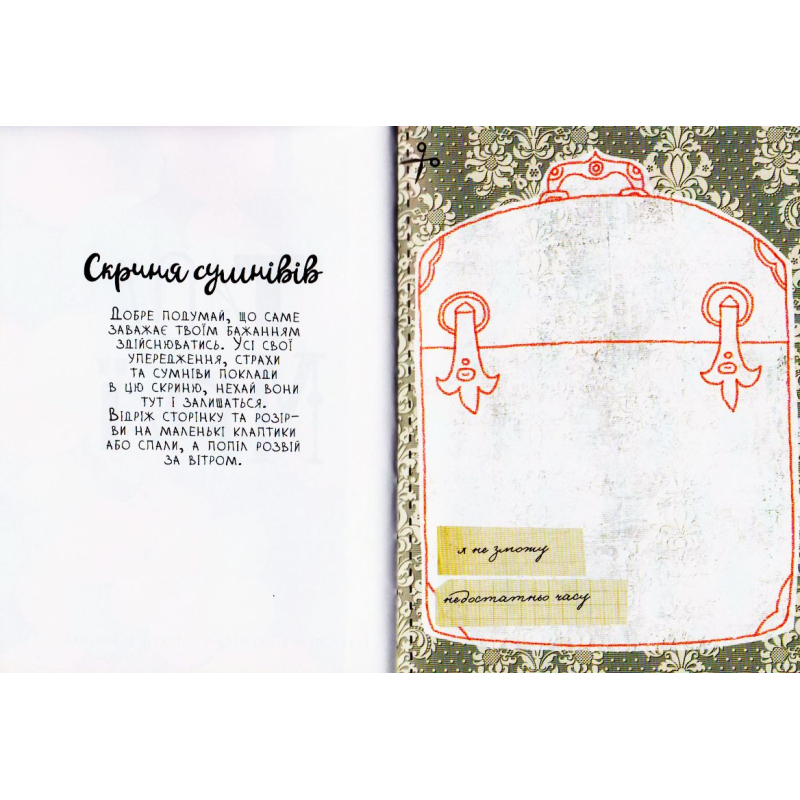 Скриня сумнівів
Добре подумай, що саме
заважає твоїм бажанням
здійснюватись. Усі свої
упередження, страхи
та сумніви поклади
в цю скриню, нехай вони
тут і залишаться.
Відріж сторінку та розір-
ви на маленькі клаптики
або спали, а попіл розвій
за вітром.
я не зможу
недостатньо часу